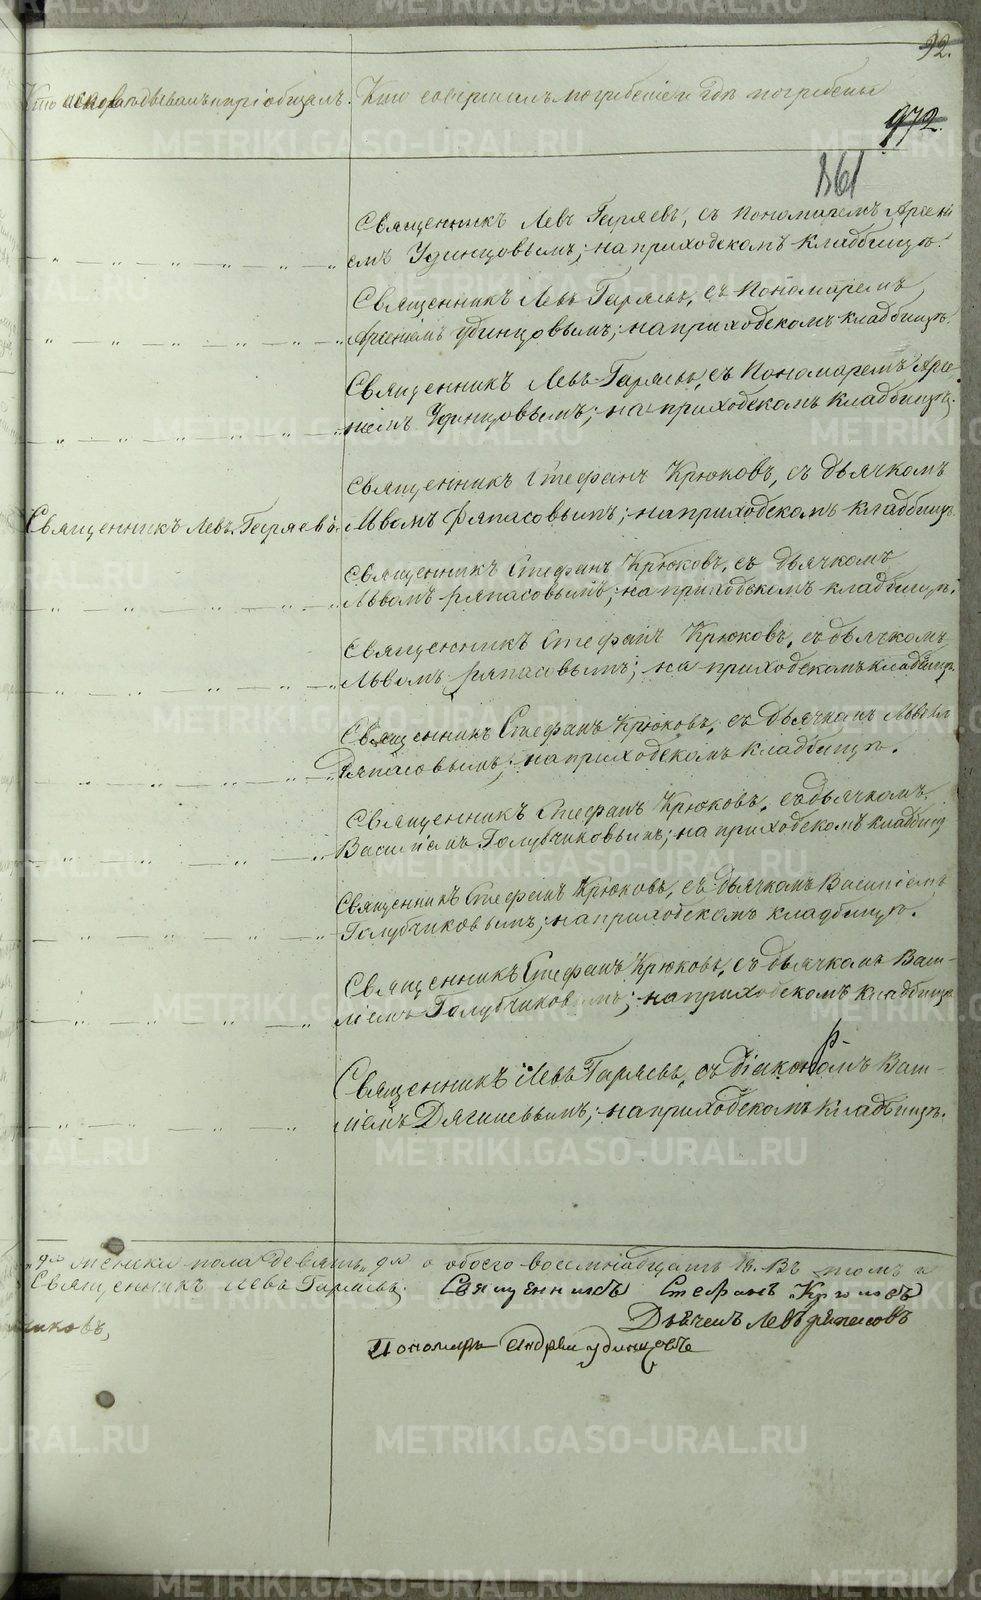 92.
Кто исповѣдывалъ и пріобщалъ. Кто совершилъ погребеніе и гдѣ погребены
972.
861
Священникъ Левъ Гаряевъ, съ Пономаремъ Арсені
емъ Удинцовымъ; на приходскомъ кладбищѣ.
Священникъ Левъ Гаряевъ, съ Пономаремъ
Арсеніемъ Удинцовымъ; на приходскомъ кладбищѣ.
Священникъ Левъ Гаряевъ, съ Пономаремъ Арсе-
ніемъ Удинцовымъ; на приходскомъ кладбищѣ.
Священникъ Стефанъ Крюковъ, съ дьячкомъ
Священникъ Левъ Гаряевъ. Львомъ Ряпасовымъ; на приходскомъ кладбищѣ.
Священникъ Стефанъ Крюковъ, съ дьячкомъ
Львомъ Ряпасовымъ; на приходскомъ кладбищѣ.
Священникъ Стефанъ Крюковъ, съ дьячкомъ
Львомъ Ряпасовымъ; на приходскомъ кладбищѣ.
Священникъ Стефанъ Крюковъ, съ дьячкомъ Львомъ
Ряпасовымъ; на приходскомъ кладбищѣ.
Священникъ Стефанъ Крюковъ, съ дьячкомъ
Василіемъ Голубчиковымъ; на приходскомъ кладбищ
Священникъ Стефанъ Крюковъ, съ дьячкомъ Василіемъ
Голубчиковымъ; на приходскомъ кладбищѣ.
Священникъ Стефанъ Крюковъ, съ дьячкомъ Васи-
ліемъ Голубчиковымъ; на приходскомъ кладбищѣ
Священникъ Левъ Гаряевъ, съ Діакономъ Васи-
ліемъ Дягилевымъ; на приходскомъ кладбищѣ.
женска пола девять, а обоего восемнадцать 18. Въ томъ и
Священникъ Левъ Гаряевъ. Священникъ Стефанъ Крюковъ
чиковъ, Дьячекъ Левъ Ряпасовъ
Пономарь Андрей Удинцовъ
METRIKI.GASO-URAL.RU